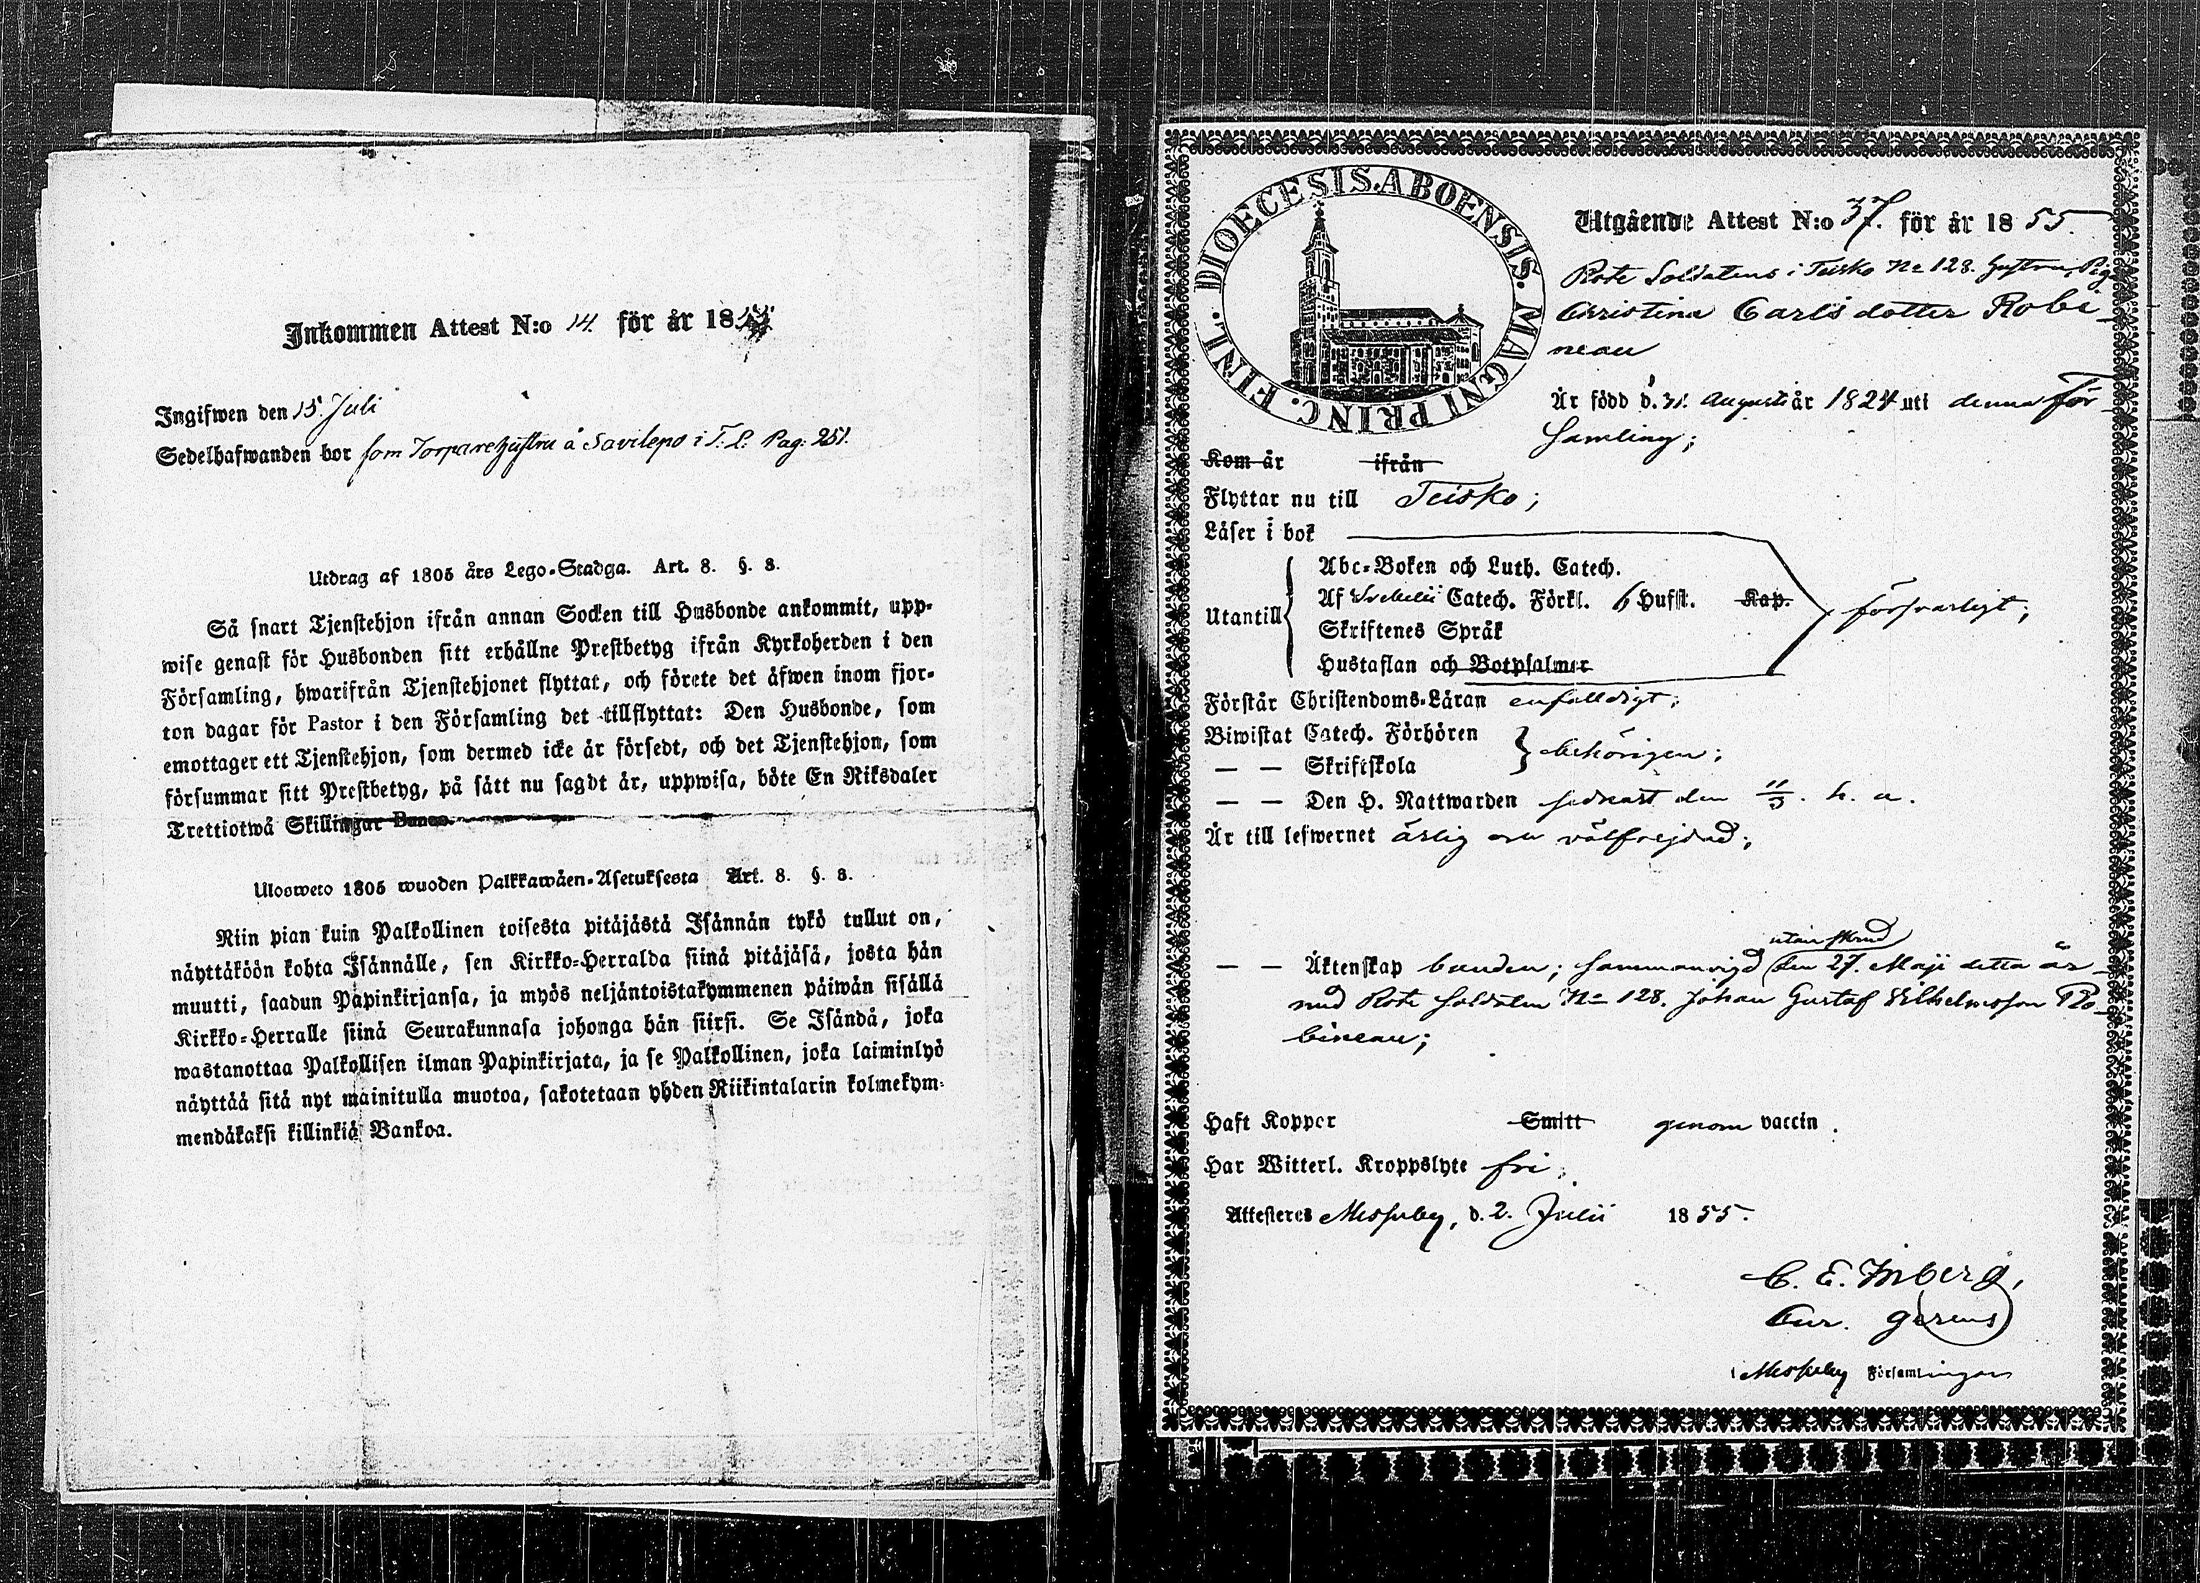 Inkommen Attest N:o 14. för år 18
Ingifwen den 15. Juli
Sedelhafwanden bor som Torparehustru å Savilepo i T. L. Pag: 251.
Utdrag af 1805 års Lego-Stadga. Art. 8. §. 8.
Så snart Tjenstehjon ifrån annan Socken till Husbonde ankommit, upp-
wise genast för Husbonden sitt erhållne Prestbetyg ifrån Kyrkoherden i den
Församling, hwarifrån Tjenstehjonet flyttat, och förete det äfwen inom fjor-
ton dagar för Pastor i den Församling det tillflyttat: Den Husbonde, som
emottager ett Tjenstehjon, som dermed icke är försedt, och det Tjenstehjon, som
försummar sitt Prestbetyg, på sätt nu sagdt är, uppwisa, böte En Riksdaler
Trettiotwå Skillingar Banco.
Ulosweto 1805 wuoden Palkkawäen-Asetuksesta Art. 8. §. 8.
Niin pian kuin Palkollinen toisesta pitäjästä Isännän tykö tullut on,
näyttäköön kohta Isännälle, sen Kirkko-Herralda siinä pitäjäsä, josta hän
muutti, saadun Papinkirjansa, ja myös neljäntoistakymmenen päiwän sisällä
Kirkko-Herralle siinä Seurakunnasa johonga hän siirsi. Se Isändä, joka
wastanottaa Palkollisen ilman Papinkirjata, ja se Palkollinen, joka laiminlyö
näyttää sitä nyt mainitulla muotoa, sakotetaan yhden Riikintalarin kolmekym-
mendäkaksi killinkiä Bankoa.
DIOECESIS. ABOENSIS. MAGNI PRINC. FINL.
Utgående Attest N:o 37. för år 1855.
Rote Soldatens i Teisko No 128. hustru, Pig.
Christina Carlsdotter Robi-
neau
Är född d. 31. Augusti år 1824 uti denna För-
samling;
Kom år ifrån
Flyttar nu till Teisko;
Läser i bok
Utantill
Abc-Boken och Luth. Catech.
Af Svebelii Catech. Förkl. 6 Hufst. Kap. försvarligt;
Skriftenes Språk
Hustaflan och Botpsalmer
Förstår Christendoms-Läran enfalldigt;
Biwistat Catech. Förhören
— — Skriftskola behörigen;
— — Den H. Nattwarden sednast den 11/3. h. a.
Är till lefwernet ärlig och välfrejdad;
utan skrud
— — Äktenskap bunden; sammanvigd den 27. Maji detta år
med Rote soldaten No 128. Johan Gustaf Wilhelmsson Ro-
bineau;
Haft Koppor Smitt genom vaccin.
Har Witterl. Kroppslyte fri;
Attesteres Messuby, d. 2. Julii 1855.
C. E. Inberg,
Cur. gerens
i Messuby Församlingar